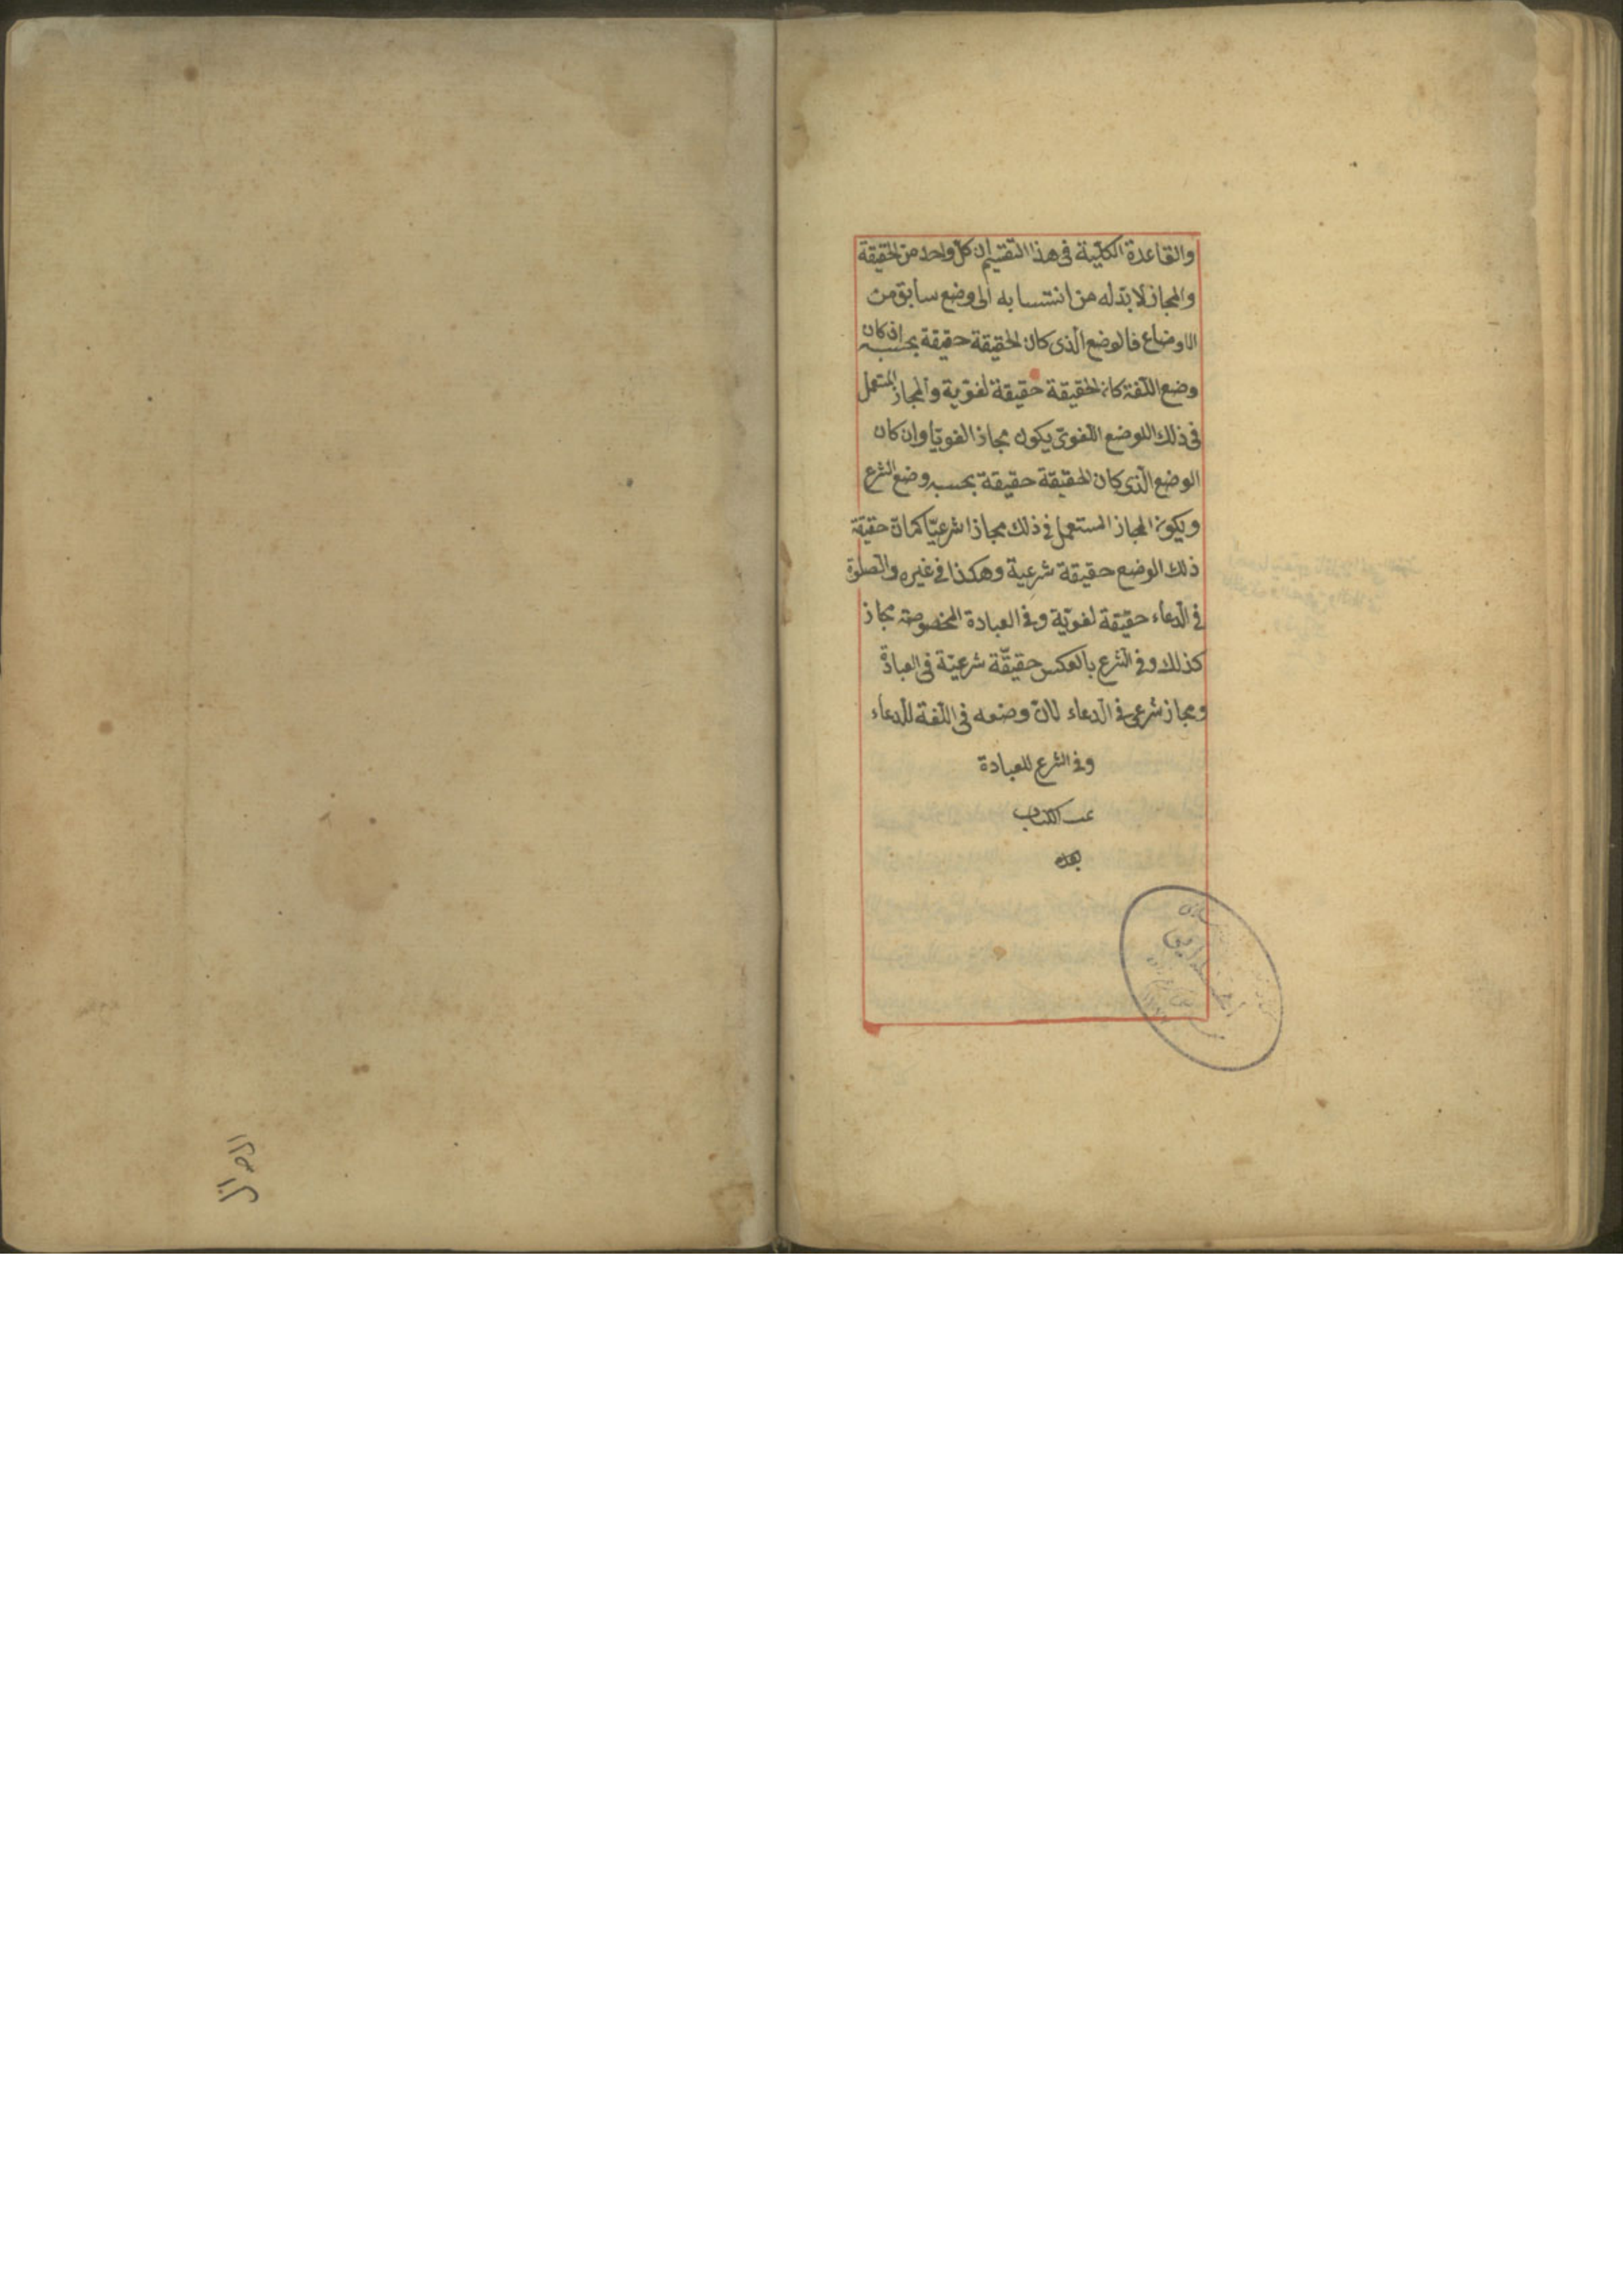 والقاعدة الكلّية فى هذا التقسيم ان كلّ واحد من الحقيقة
والمجاز لا بدّ له من انتسابه الى وضع سابق من
الاوضاع فالوضع الّذى كان الحقيقة حقيقة بحسبه ان كان
وضع اللّغة كان الحقيقة حقيقة لغويّة والمجاز المستعمل
فى ذلك الوضع اللّغوى يكون مجازا لغويّا وان كان
الوضع الّذى كان الحقيقة حقيقة بحسبه وضع الشرع
ويكون المجاز المستعمل فى ذلك مجازا شرعيّا كما انّ حقيقة
ذلك الوضع حقيقة شرعية وهكذا فى غيره والصّلوة
فى الدّعاء حقيقة لغويّة وفى العبادة المخصوصة مجاز
كذلك وفى الشرع بالعكس حقيقّة شرعيّة فى العبادة
ومجاز شرعى فى الدّعاء لانّ وضعه فى اللّغة للدّعاء
وفى الشرع للعبادة
تمت الكتاب